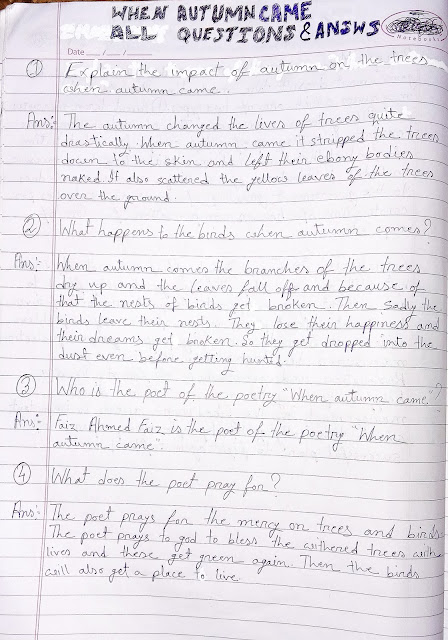 WHEN AUTUMN CAME
ALL QUESTIONS & ANSWS
Date
Notebooks
① Explain the impact of autumn on the trees
when autumn came.
Ans:- The autumn changed the lives of trees quite
drastically. When autumn came it stripped the trees
down to the skin and left their ebony bodies
naked. It also scattered the yellow leaves of the trees
over the ground.
② What happens to the birds when autumn comes?
Ans:- When autumn comes the branches of the trees
dry up and the leaves fall off and because of
that the nests of birds get broken. Then sadly the
birds leave their nests. They lose their happiness and
their dreams get broken. So they get dropped into the
dust even before getting hunted.
③ Who is the poet of the poetry "When autumn came"?
Ans:- Faiz Ahmed Faiz is the poet of the poetry "When
autumn came".
④ What does the poet pray for?
Ans:- The poet prays for the mercy on trees and birds.
The poet prays to god to bless the withered trees with
lives and these get green again. Then the birds
will also get a place to live.